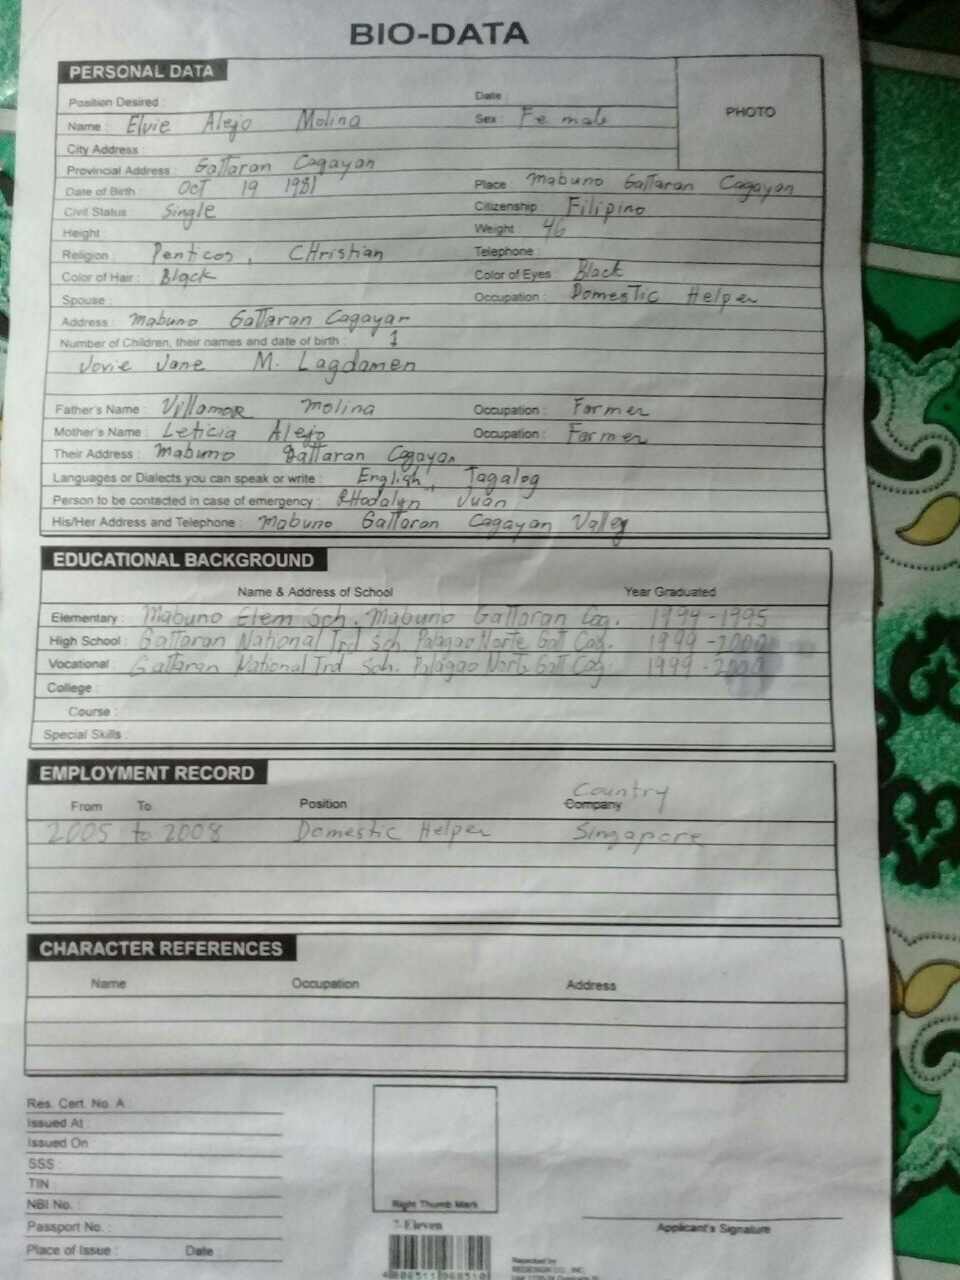 BIO-DATA
PERSONAL DATA
Position Desired :
Date :
PHOTO
Name : Elvie Alejo Molina
Sex : Female
City Address :
Provincial Address : Gattaran Cagayan
Date of Birth : Oct 19 1981
Place : Mabuno Gattaran Cagayan
Civil Status : Single
Citizenship : Filipino
Height :
Weight : 46
Religion : Penticos, CHristian
Telephone :
Color of Hair : Black
Color of Eyes : Black
Spouse :
Occupation : Domestic Helper
Address : Mabuno Gattaran Cagayan
Number of Children, their names and date of birth : 1
Jovie Jane M. Lagdamen
Father's Name : Villamor Molina
Occupation : Farmer
Mother's Name : Leticia Alejo
Occupation : Farmer
Their Address : Mabuno Gattaran Cagayan
Languages or Dialects you can speak or write : English, Tagalog
Person to be contacted in case of emergency : RHodalyn Juan
His/Her Address and Telephone : Mabuno Gattaran Cagayan Valley
EDUCATIONAL BACKGROUND
Name & Address of School Year Graduated
Elementary : Mabuno Elem Sch. Mabuno Gattaran Cag. 1994-1995
High School : Gattaran National Trd Sch Palagao Norte Gat Cag. 1999-2000
Vocational : Gattaran National Trd Sch. Palagao Norte Gatt Cag. 1999-2000
College :
Course :
Special Skills :
EMPLOYMENT RECORD
Country
From To Position Company
2005 to 2008 Domestic Helper Singapore
CHARACTER REFERENCES
Name Occupation Address
Res. Cert. No. A :
Issued At :
Issued On
SSS :
TIN
NBI No. :
Passport No. :
Place of Issue : Date :
Right Thumb Mark
7-Eleven
Applicant's Signature